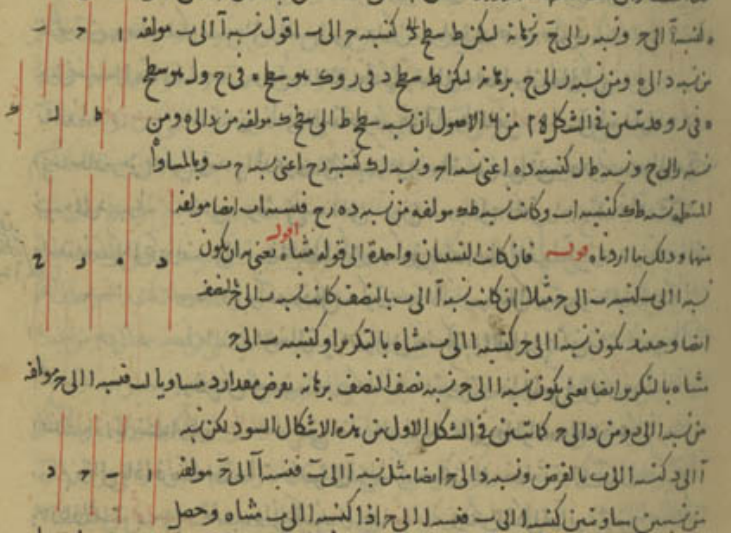 كنسبة آ الى ح ونسبة ر الى ح برهانه ليكن ط سطح كنسبة ح الى ب اقول نسبة آ الى ب مولفة
من نسبة د الى ه ومن نسبة ر الى ح برهانه ليكن ط سطح د في ر و ك هو سطح ه في ح ول هو سطح
ه في ر وقد تبين في الشكل من الاصول ان نسبة سطح ط الى سطح ك مولفة من د الى ه ومن
نسبة ر الى ح ونسبة ط ل كنسبة د ه اعني نسبة ا ح ونسبة ل ك كنسبة ر ح اعني نسبة ح ب وبالمساواة
المنتظمة نسبة ط ك كنسبة ا ب وكانت نسبة ط ك مولفة من نسبة د ه ر ح فنسبة ا ب ايضا مولفة
منهما وذلك ما اردناه قوله فان كانت النسبتان واحدة الى قوله مثناه اقول يعني به ان يكون
نسبة ا الى ب كنسبة ب الى ح مثلا ان كانت نسبة آ الى ب بالنصف كانت نسبة ب الى ح بالنصف
ايضا وحينئذ يكون نسبة ا الى ح كنسبة ا الى ب مثناه بالتكرير او كنسبة ب الى ح
مثناه بالتكرير ايضا يعني يكون نسبة ا الى ح نسبة نصف النصف برهانه نفرض مقدار د مساويا ل ب فنسبة ا الى ح مولفة
من نسبة ا الى د ومن د الى ح كما تبين في الشكل الاول من هذه الاشكال لكن نسبة
آ الى د كنسبة ا الى ب بالفرض ونسبة د الى ح ايضا مثل نسبة آ الى ب فنسبة آ الى ح مولفة
من نسبتين متساويتين كنسبة ا الى ب فنسبة ا الى ح اذا كنسبة ا الى ب مثناه وحصل
ا ح ب
ط ل ك
د ه ر ح
ا ب ح د